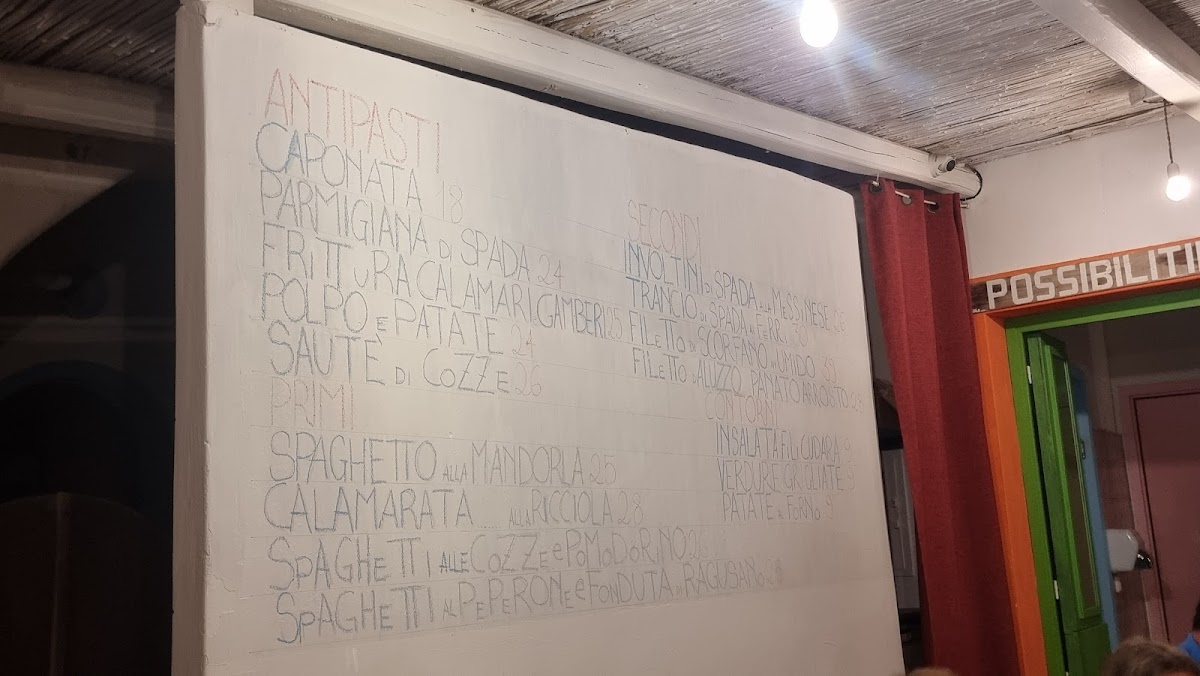 ANTIPASTI
CAPONATA 18
PARMIGIANA DI SPADA 24
FRITTURA CALAMARI GAMBERI 25
POLPO E PATATE 24
SAUTÉ DI COZZE 26
PRIMI
SPAGHETTO ALLA MANDORLA 25
CALAMARATA ..... ALLA RICCIOLA 28
SPAGHETTI ALLE COZZE e POMODORINO 26
SPAGHETTI AL PEPERONE e FONDUTA DI RAGUSANO
SECONDI
INVOLTINI DI SPADA ALLA MESSINESE
TRANCIO DI SPADA AI FERRI
FILETTO DI SCORFANO IN UMIDO
FILETTO DI ALUZZO PANATO ARROSTO
CONTORNI
INSALATA FILICUDARA
VERDURE GRIGLIATE 9
PATATE AL FORNO 9
POSSIBILITI